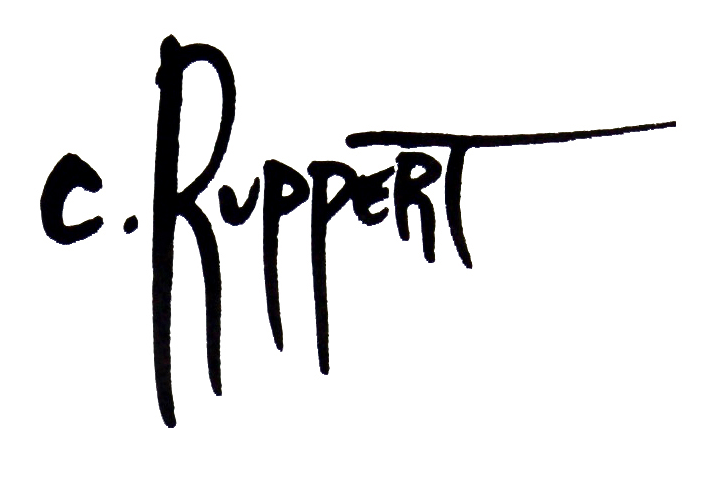 C. RUPPERT